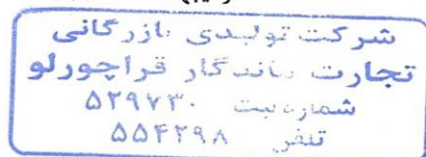 شرکت تولیدی بازرگانی
تجارت ماندگار قراچورلو
شماره ثبت ۵۲۹۷۳۰
تلفن ۵۵۴۲۹۸